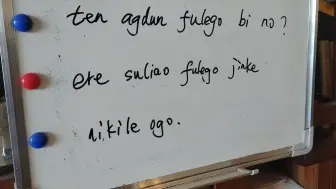 ten agdun fulego bi no?
ere suliao fulego jiake
aikile ogo.